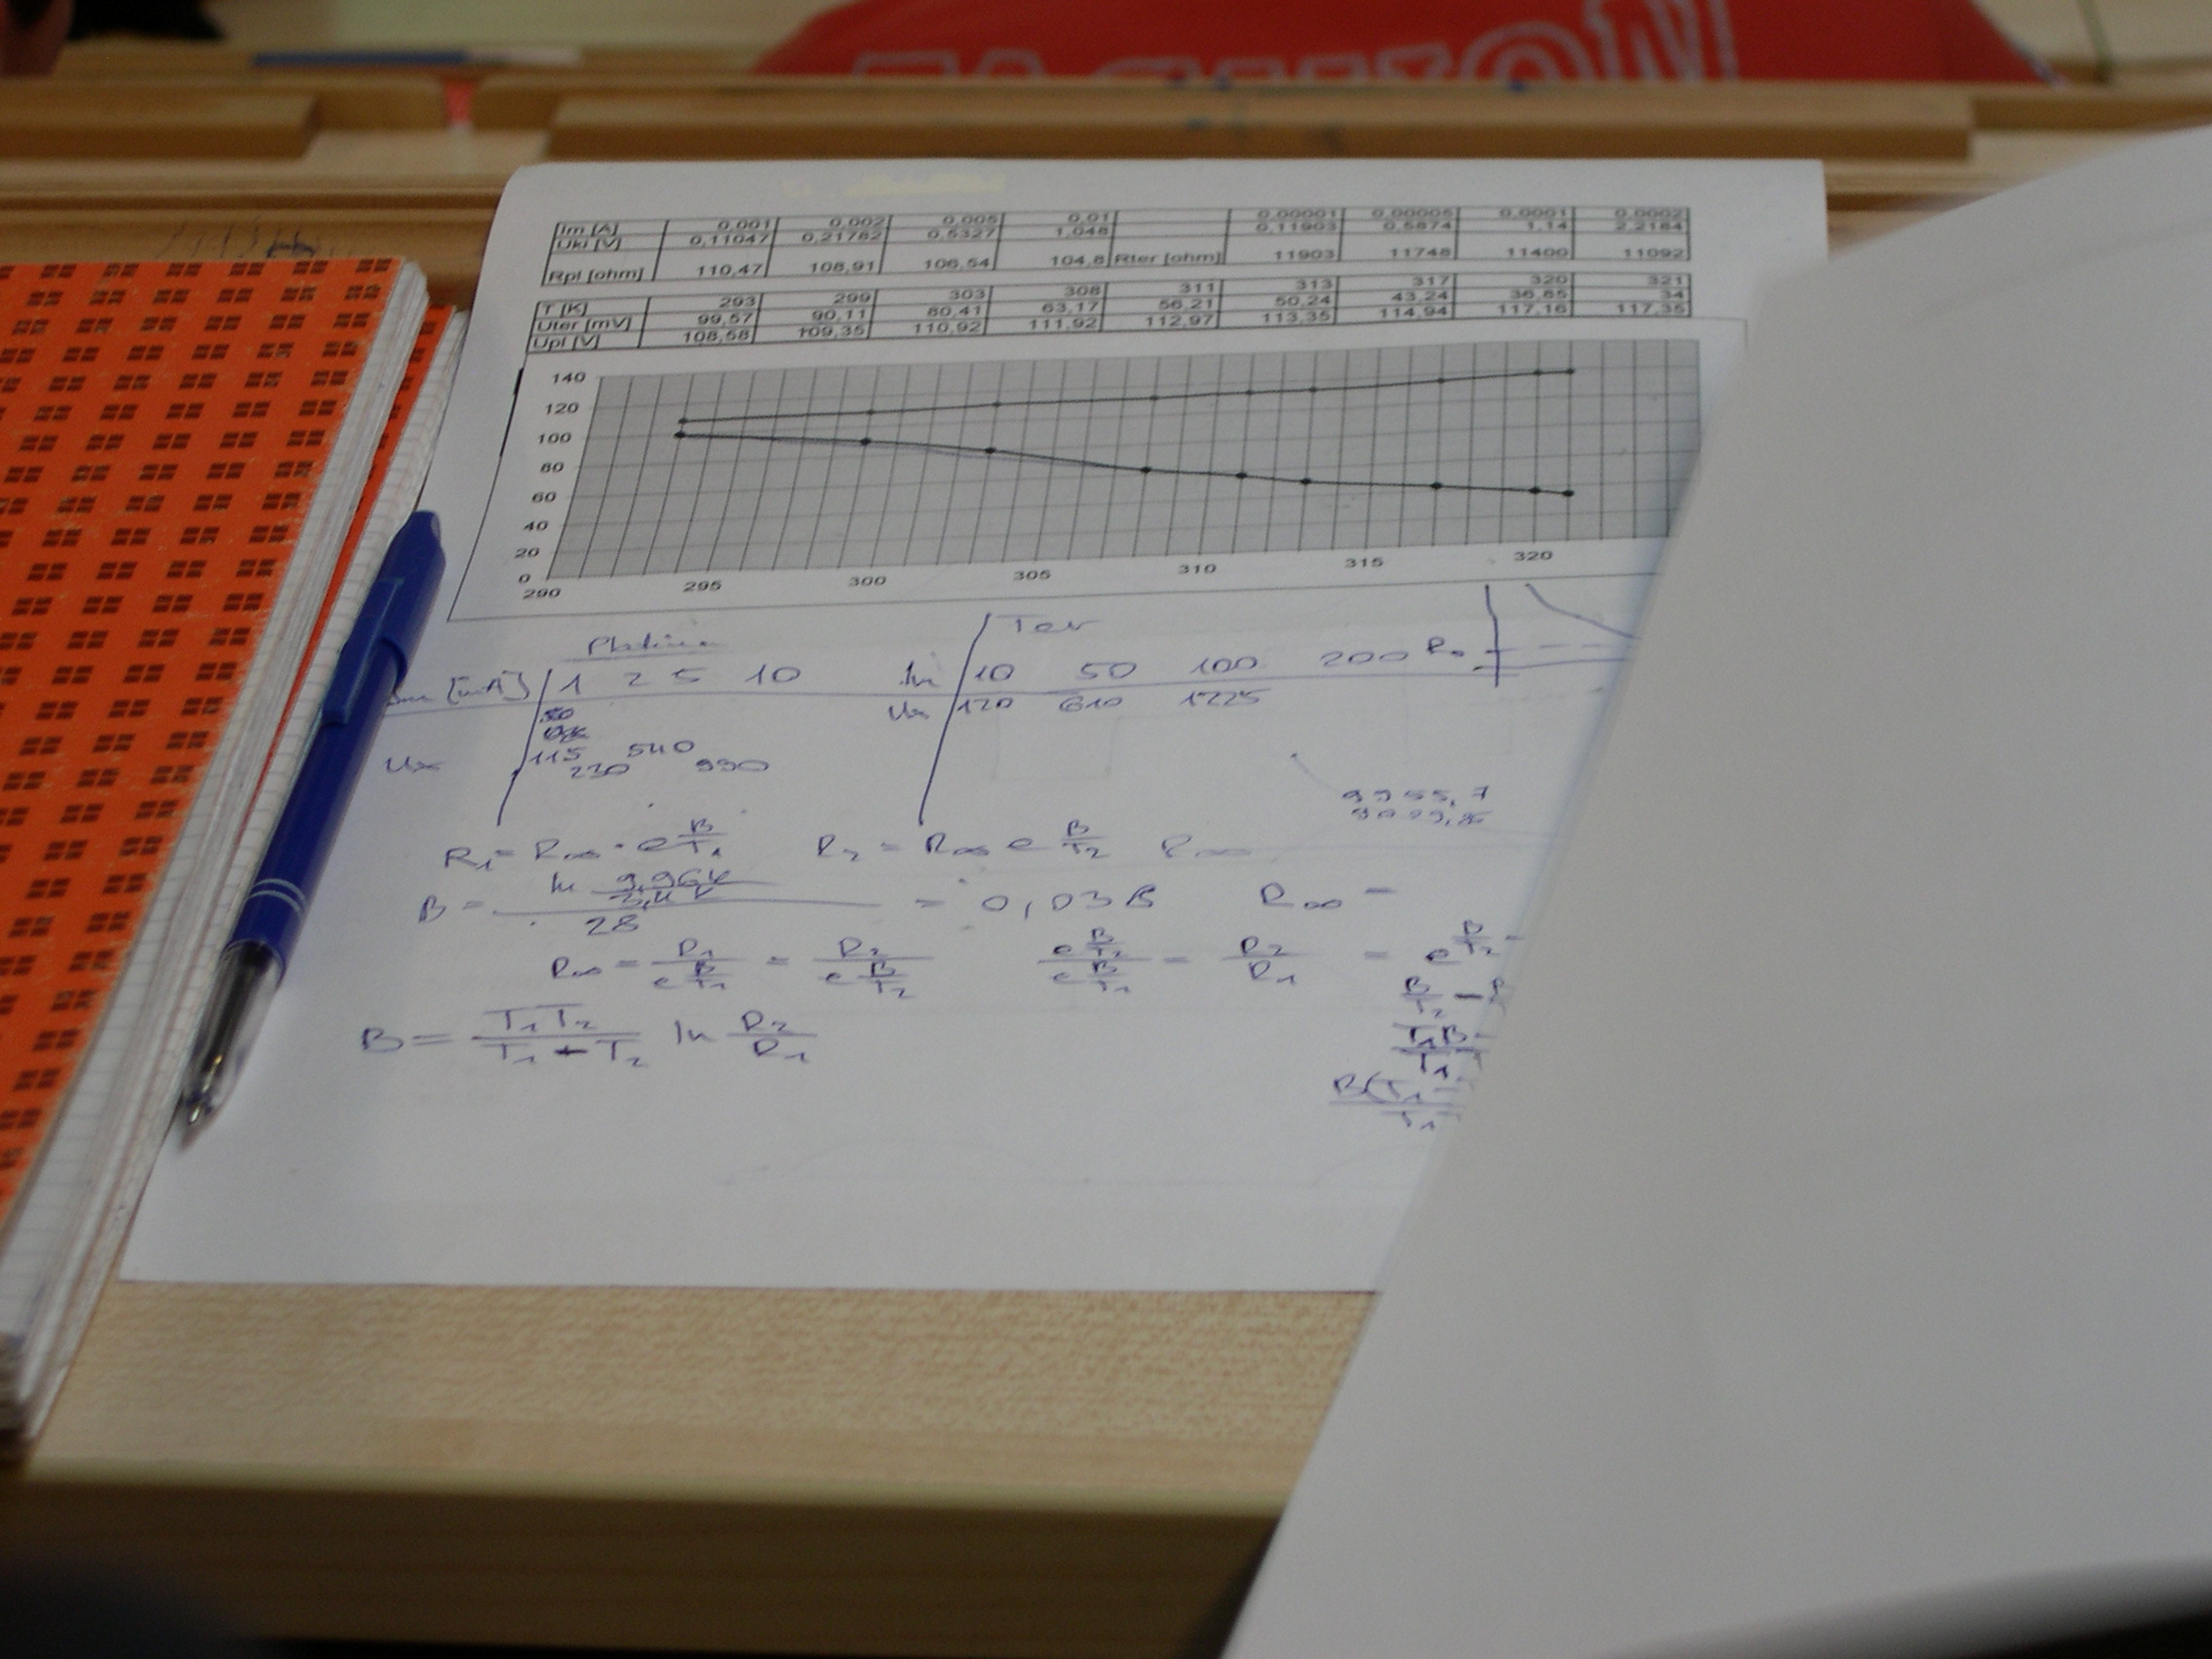 Im [A] 0,001 0,002 0,005 0,01 0,00001 0,00005 0,0001 0,0002
Uki [V] 0,11047 0,21782 0,5327 1,048 0,11903 0,5874 1,14 2,2184
Rpl [ohm] 110,47 108,91 106,54 104,8 Rter [ohm] 11903 11748 11400 11092
T [K] 293 299 303 308 311 313 317 320 321
Uter [mV] 99,57 90,11 80,41 63,17 56,21 50,24 43,24 36,85 34
Upl [V] 108,58 109,35 110,92 111,92 112,97 113,35 114,94 117,16 117,35
140
120
100
80
60
40
20
0
290 295 300 305 310 315 320
Platina Ter
[mA] 1 2 5 10 Im 10 50 100 200
Ux 120 610 1225
Ux 115 230 540 990
9955,7
R₁ = R∞ · e^(B/T₁) R₂ = R∞ e^(B/T₂) R∞
B = ln / 28 = 0,038 R∞ =
R∞ = R₁/e^(B/T₁) = R₂/e^(B/T₂) e^(B/T₂)/e^(B/T₁) = R₂/R₁ = e^(B/T₂ -
B/T₂ -
T₁B - / T₁
B = T₁T₂/(T₁ - T₂) ln R₂/R₁
B(T₁ - / T₁